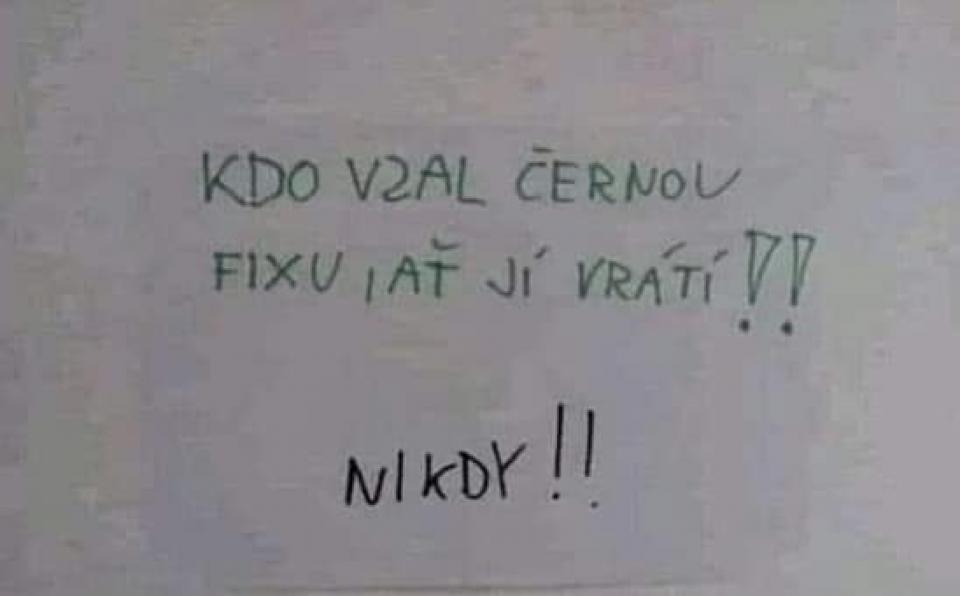 KDO VZAL ČERNOU
FIXU, AŤ JÍ VRÁTÍ!!
NIKDY!!